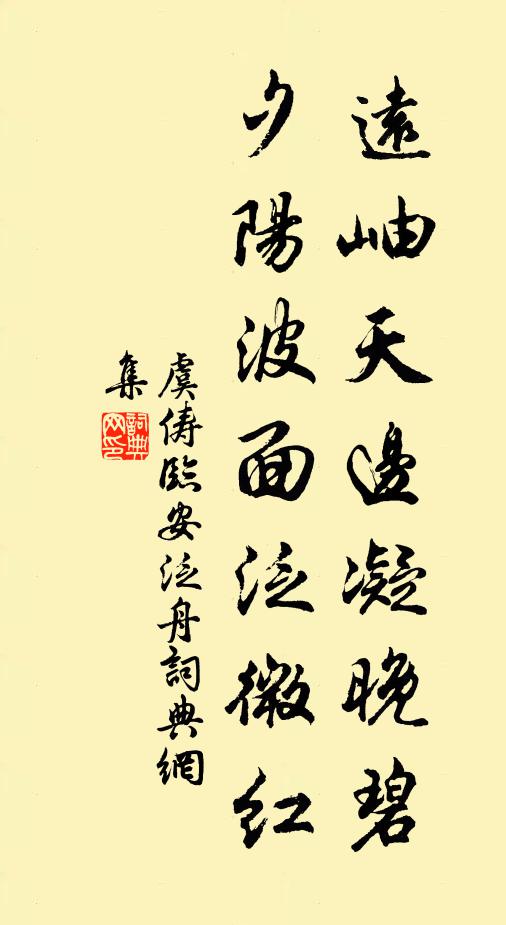 遠岫天邊凝晚碧
夕陽波面泛微紅
虞儔臨安泛舟詞典網
集
詞典
网印